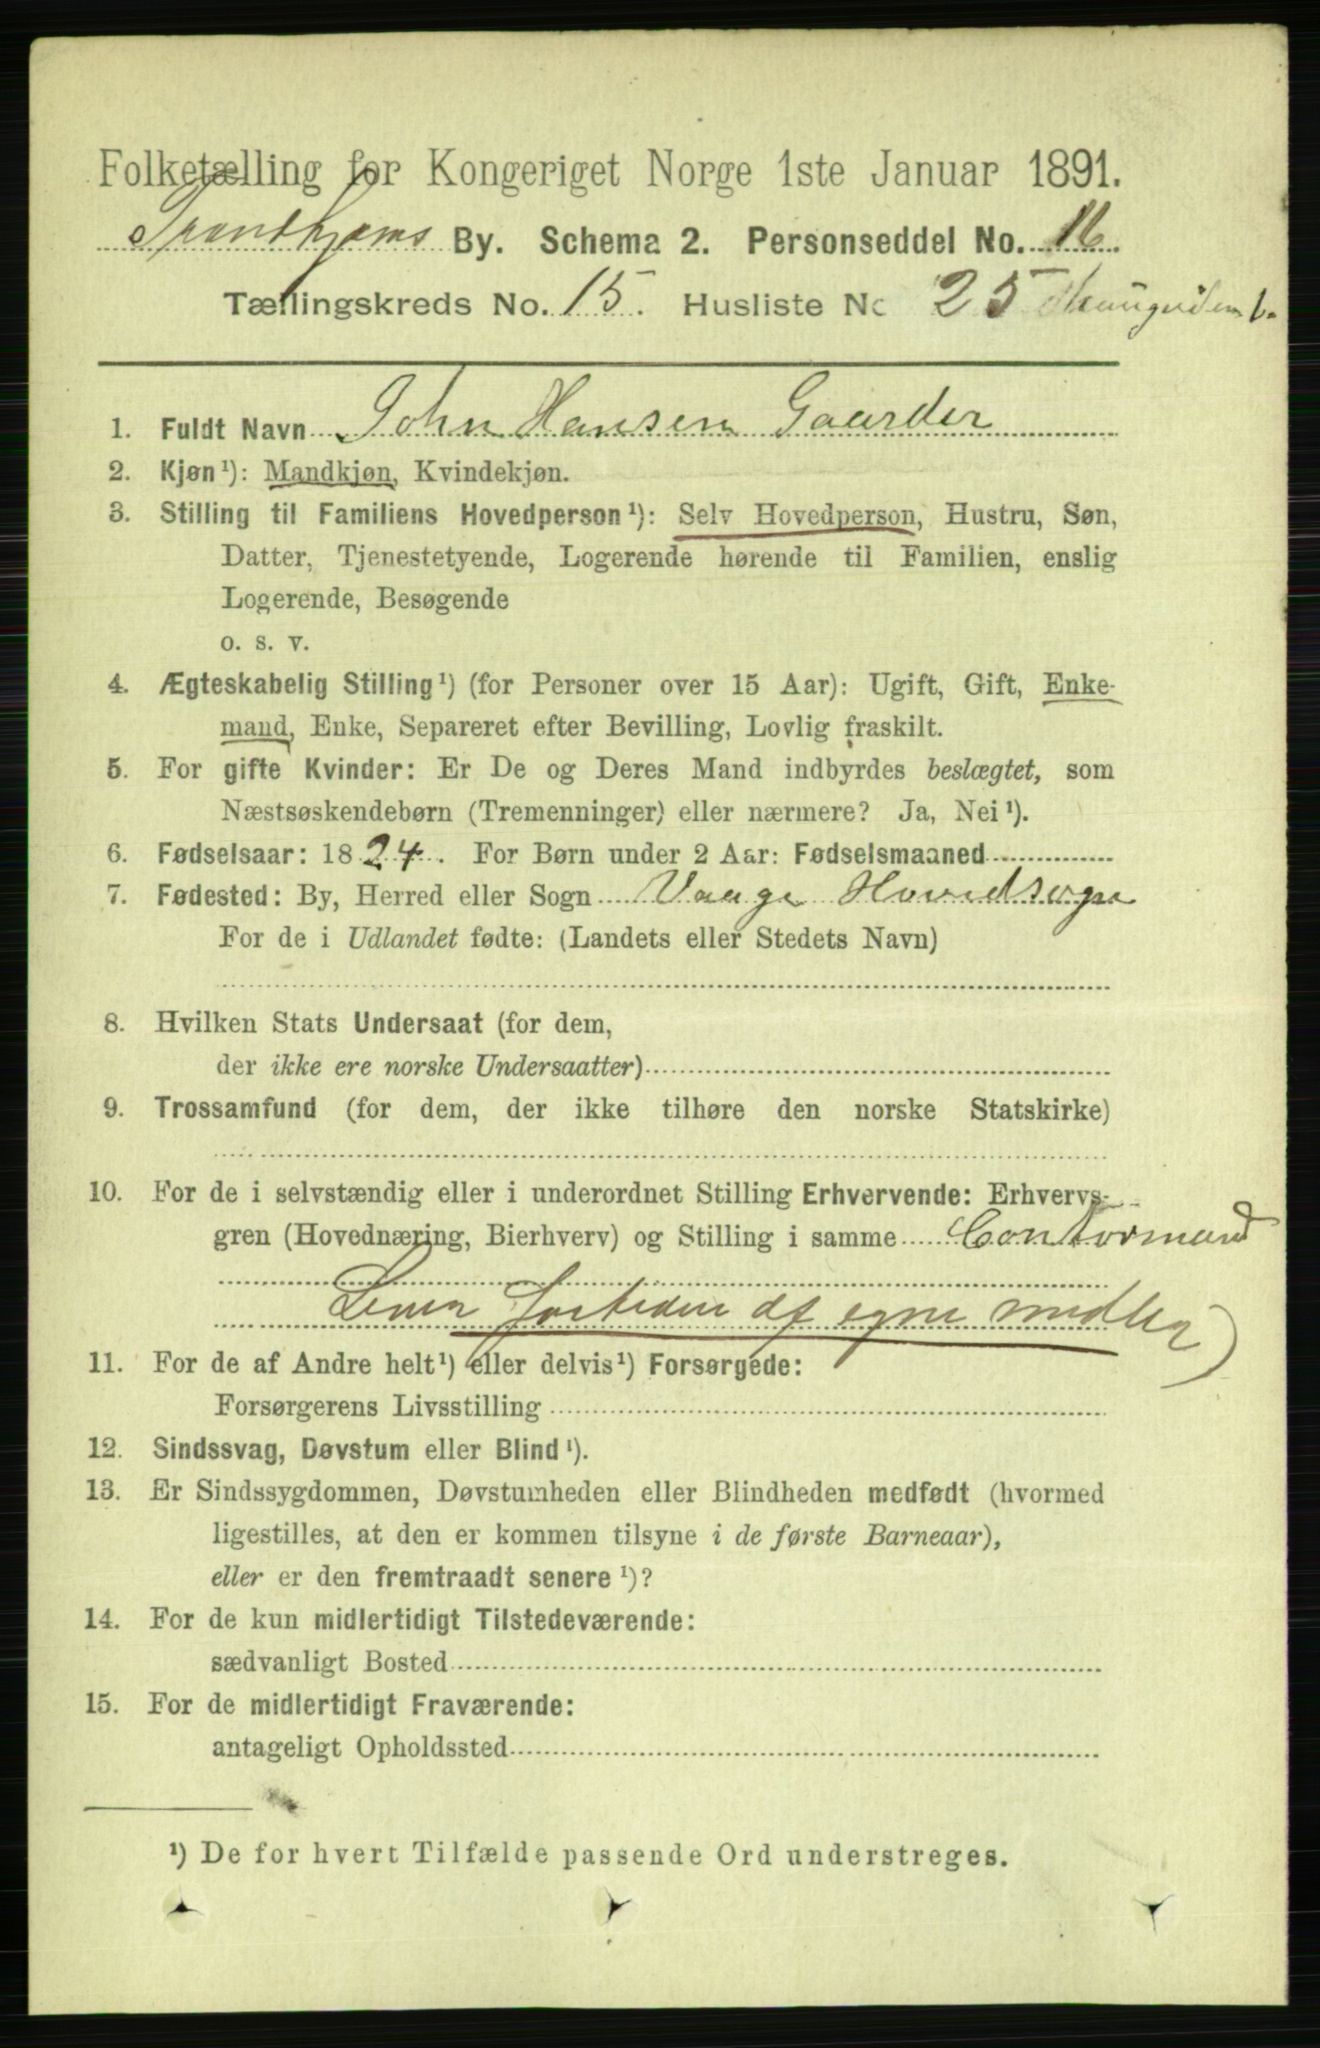 Folketælling for Kongeriget Norge 1ste Januar 1891.
Trondhjems By. Schema 2. Personseddel No. 16.
Tællingskreds No. 15. Husliste No 25
1. Fuldt Navn John Hansen Gaarder
2. Kjøn¹): Mandkjøn, Kvindekjøn.
3. Stilling til Familiens Hovedperson¹): Selv Hovedperson, Hustru, Søn,
Datter, Tjenestetyende, Logerende hørende til Familien, enslig
Logerende, Besøgende
o. s. v.
4. Ægteskabelig Stilling¹) (for Personer over 15 Aar): Ugift, Gift, Enke-
mand, Enke, Separeret efter Bevilling, Lovlig fraskilt.
5. For gifte Kvinder: Er De og Deres Mand indbyrdes beslægtet, som
Næstsøskendebørn (Tremenninger) eller nærmere? Ja, Nei¹).
6. Fødselsaar: 1824. For Børn under 2 Aar: Fødselsmaaned
7. Fødested: By, Herred eller Sogn Vaage Hovedsogn
For de i Udlandet fødte: (Landets eller Stedets Navn)
8. Hvilken Stats Undersaat (for dem,
der ikke ere norske Undersaatter)
9. Trossamfund (for dem, der ikke tilhøre den norske Statskirke)
10. For de i selvstændig eller i underordnet Stilling Erhvervende: Erhvervs-
gren (Hovednæring, Bierhverv) og Stilling i samme Contormand
Lever fortiden af egne midler)
11. For de af Andre helt¹) eller delvis¹) Forsørgede:
Forsørgerens Livsstilling
12. Sindssvag, Døvstum eller Blind¹).
13. Er Sindssygdommen, Døvstumheden eller Blindheden medfødt (hvormed
ligestilles, at den er kommen tilsyne i de første Barneaar),
eller er den fremtraadt senere¹)?
14. For de kun midlertidigt Tilstedeværende:
sædvanligt Bosted
15. For de midlertidigt Fraværende:
antageligt Opholdssted
¹) De for hvert Tilfælde passende Ord understreges.